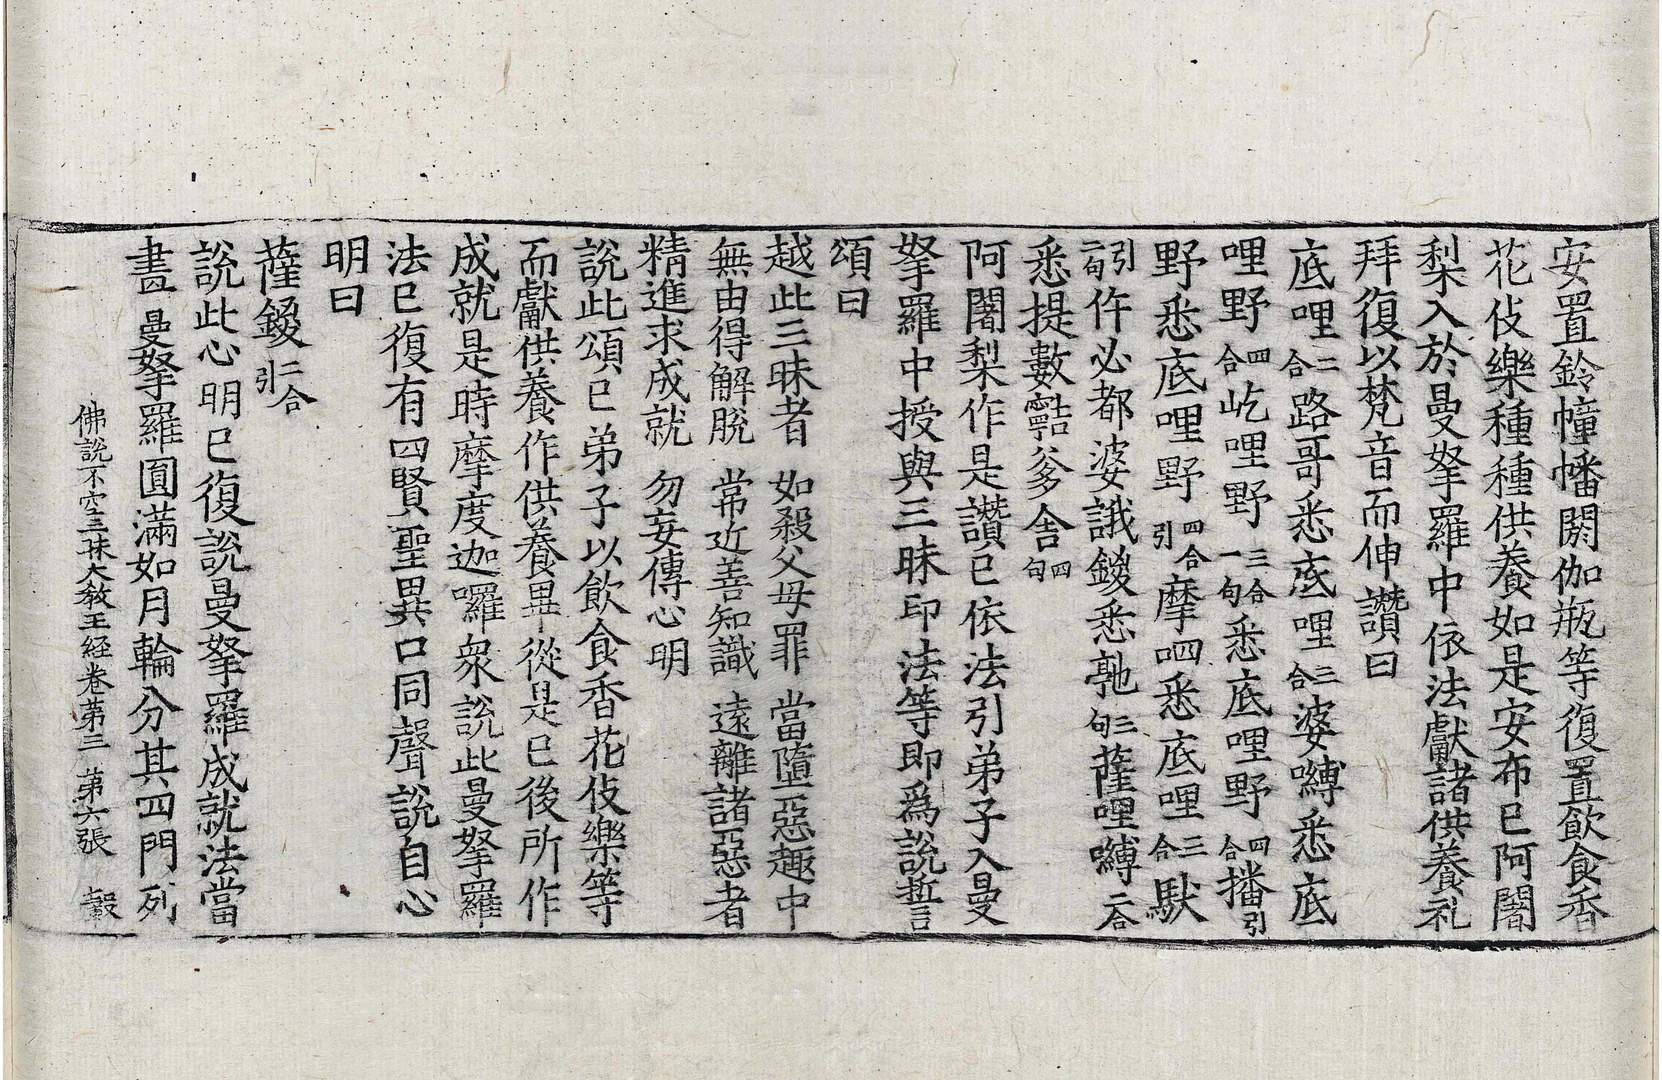 安置鈴幢幡閼伽瓶等復置飲食香
花伎樂種種供養如是安布已阿闍
梨入於曼拏羅中依法獻諸供養礼
拜復以梵音而伸讚曰
底哩二合路哥悉底哩三合婆嚩悉底
哩野四合屹哩野三合一句悉底哩野四合播引
野悉底哩野四合引摩呬悉底哩三合馱
引二句仵必都婆誐鍐悉亸三句薩哩嚩二合
悉提數𪘨爹舍四句
阿闍梨作是讚已依法引弟子入曼
拏羅中授與三昧印法等即爲說誓
頌曰
越此三昧者 如殺父母罪 當墮惡趣中
無由得解脫 常近善知識 遠離諸惡者
精進求成就 勿妄傳心明
說此頌已弟子以飲食香花伎樂等
而獻供養作供養畢從是已後所作
成就是時摩度迦囉衆說此曼拏羅
法已復有四賢聖異口同聲說自心
明曰
薩鍐二合引
說此心明已復說曼拏羅成就法當
畫曼拏羅圓滿如月輪分其四門列
佛說不空三昧大教王經卷第三 第六張 縠